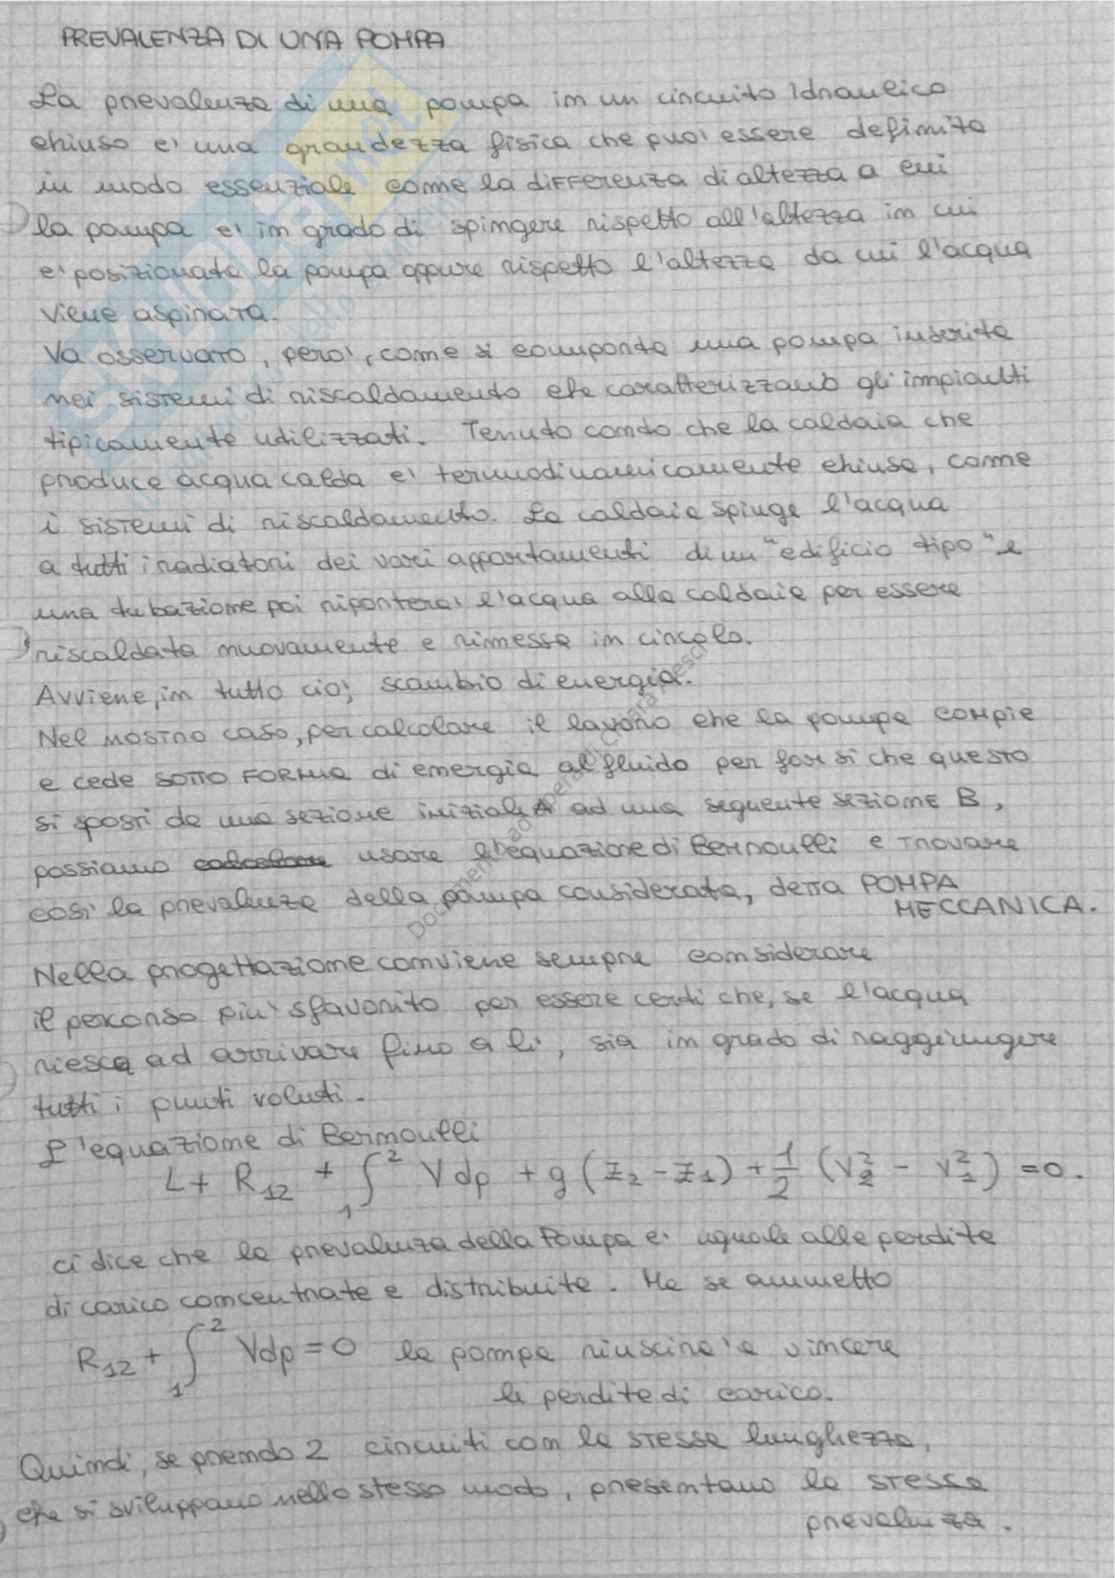 PREVALENZA DI UNA POMPA
La prevalenza di una pompa in un circuito idraulico
chiuso e' una grandezza fisica che puo' essere definita
in modo essenziale come la differenza di altezza a cui
la pompa e' in grado di spingere rispetto all'altezza in cui
e' posizionata la pompa oppure rispetto l'altezza da cui l'acqua
viene aspirata.
Va osservato, pero', come si comporta una pompa inserita
nei sistemi di riscaldamento che caratterizzano gli impianti
tipicamente utilizzati. Tenuto conto che la caldaia che
produce acqua calda e' termodinamicamente chiusa, come
i sistemi di riscaldamento. La caldaia spinge l'acqua
a tutti i radiatori dei vari appartamenti di un "edificio tipo" e
una tubazione poi riportera' l'acqua alla caldaia per essere
riscaldata nuovamente e rimessa in circolo.
Avviene, in tutto cio', scambio di energia.
Nel nostro caso, per calcolare il lavoro che la pompa compie
e cede sotto forma di energia al fluido per far si che questo
si sposti da una sezione iniziale A ad una seguente sezione B,
possiamo calcolare usare l'equazione di Bernoulli e trovare
cosi' la prevalenza della pompa considerata, detta POMPA
MECCANICA.
Nella progettazione conviene sempre considerare
il percorso piu' sfavorito per essere certi che, se l'acqua
riesce ad arrivare fino a li', sia in grado di raggiungere
tutti i punti voluti.
L'equazione di Bernoulli
L + R12 + ∫₁² Vdp + g (z2 - z1) + 1/2 (v2² - v1²) = 0.
ci dice che la prevalenza della Pompa e' uguale alle perdite
di carico concentrate e distribuite. Ma se ammetto
R12 + ∫₁² Vdp = 0 la pompa riuscira' a vincere
le perdite di carico.
Quindi, se prendo 2 circuiti con la stessa lunghezza,
che si sviluppano nello stesso modo, presentano la stessa
prevalenza.